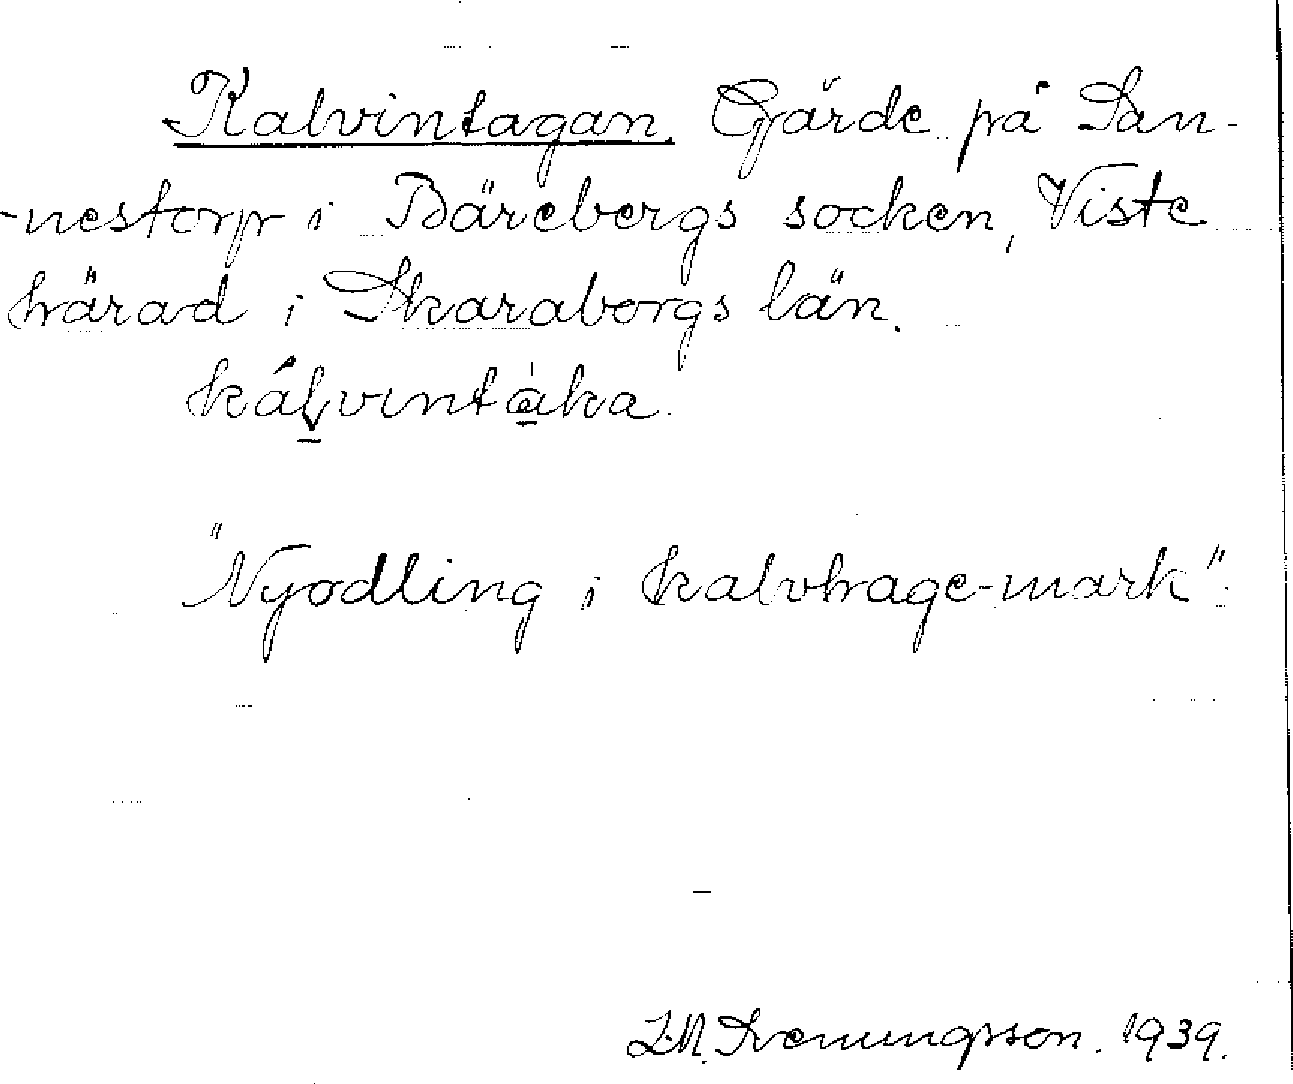 Kalvintagan. Gärde på San-
-nestorp i Bärebergs socken, Viste
härad i Skaraborgs län.
kálvintàka.
"Nyodling i kalvhage-mark".
Svenungsson. 1939.